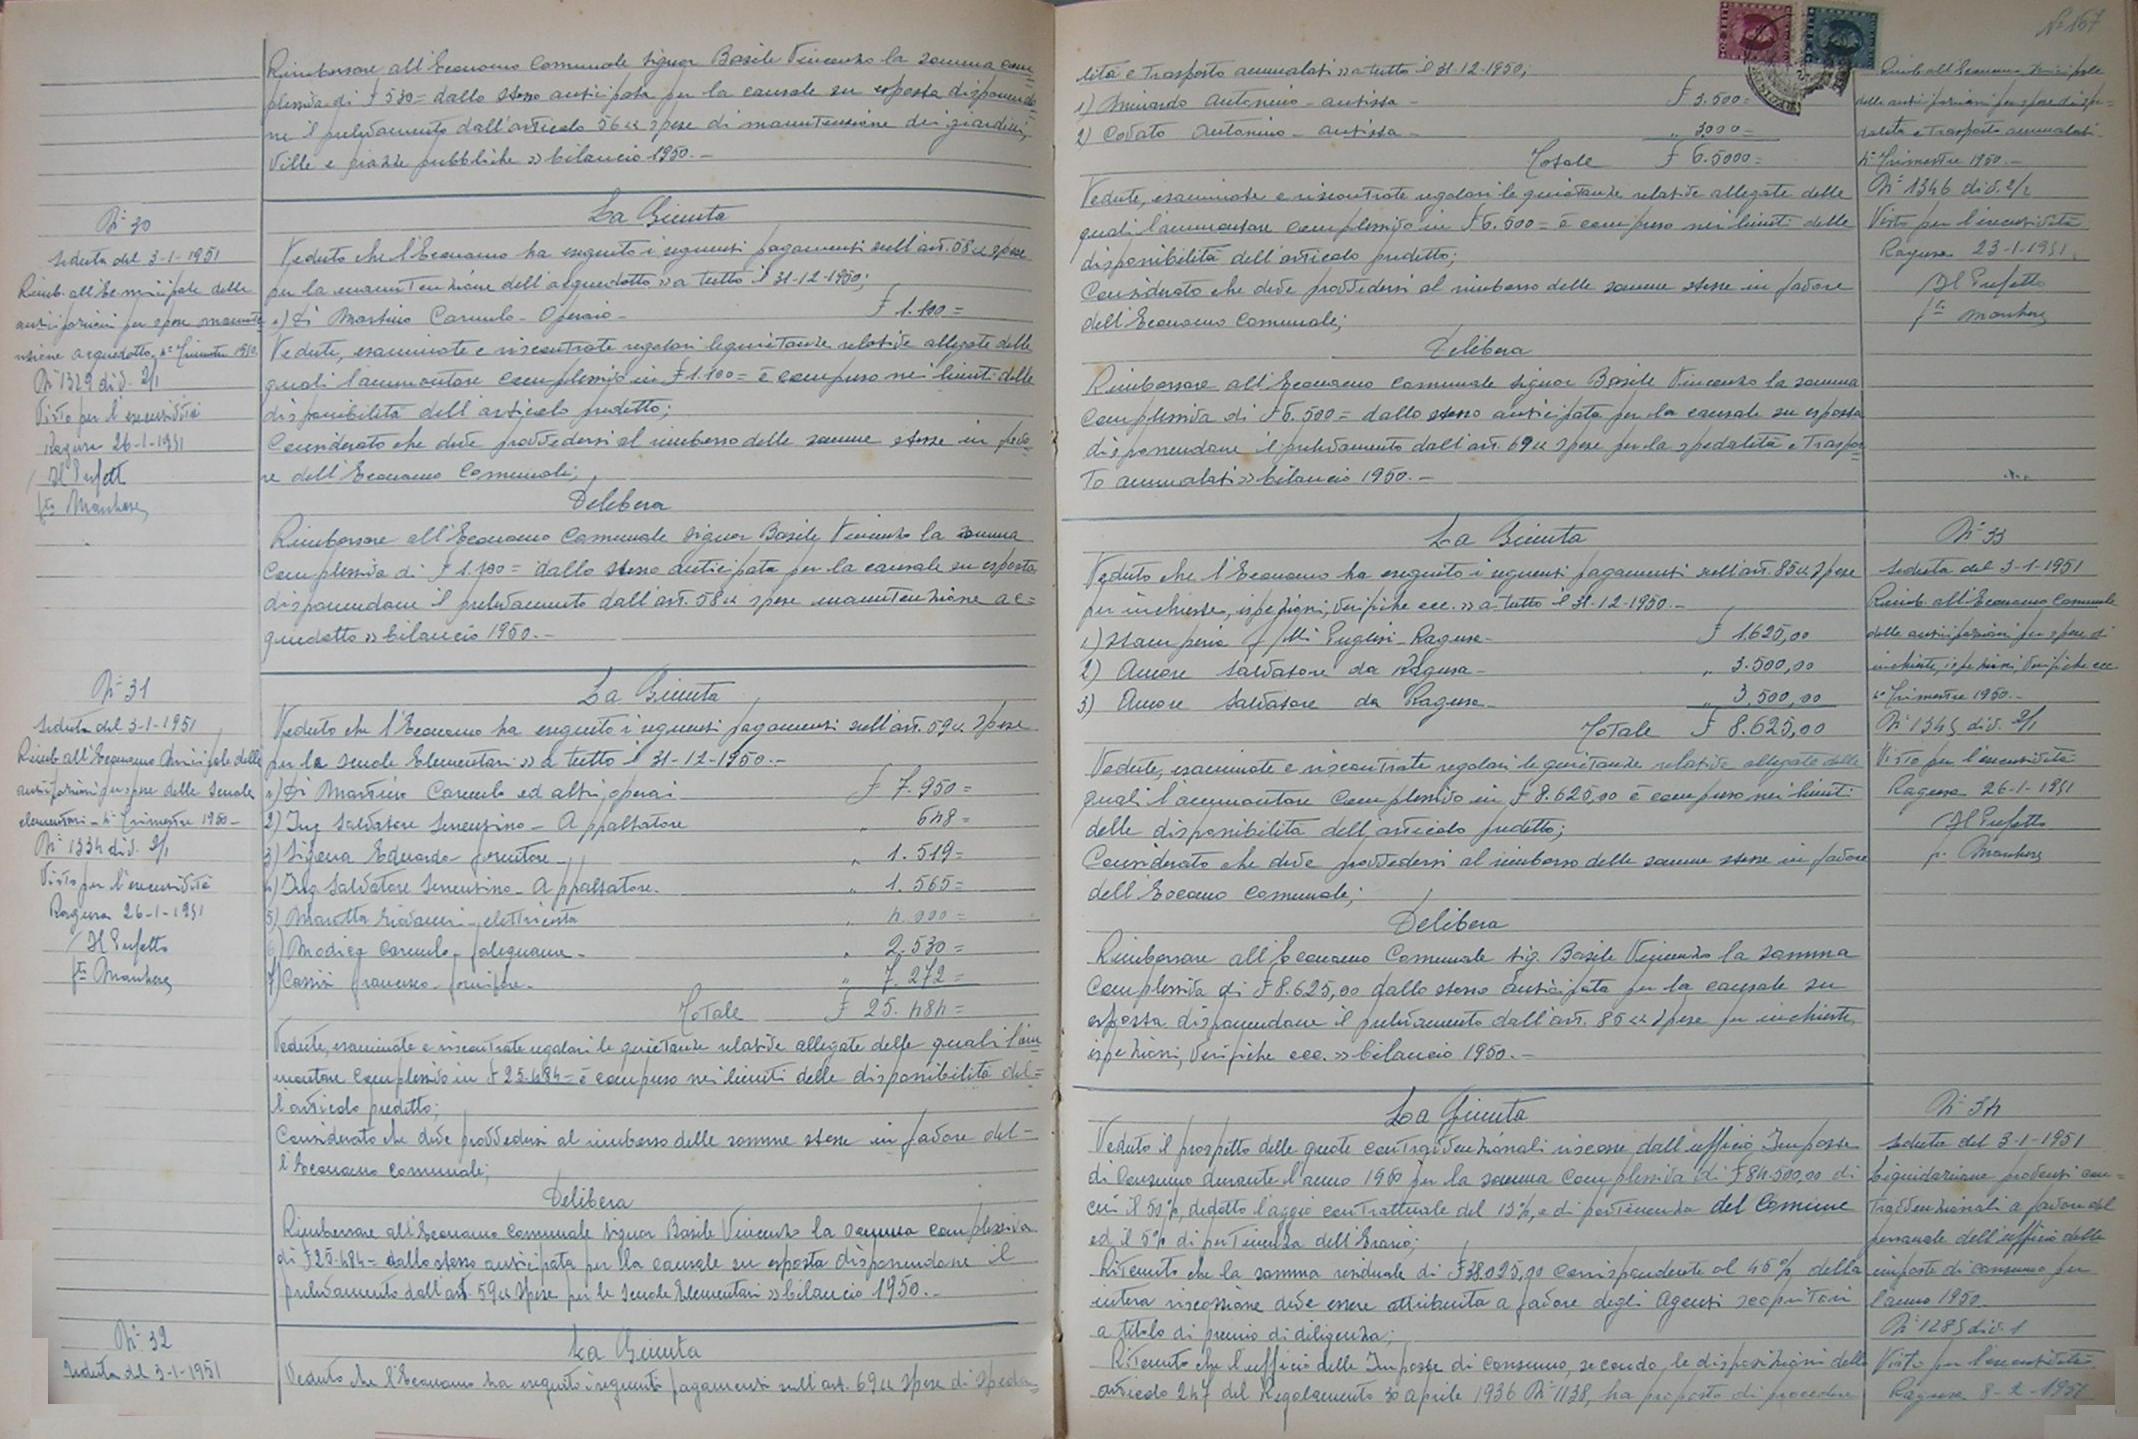 Rimborsare all'Economo Comunale signor Basile Vincenzo la somma com=
plessiva di £ 530= dallo stesso anticipata per la causale su esposta disponendo=
ne il prelevamento dall'articolo 56 << spese di manutenzione dei giardini,
ville e piazze pubbliche >> bilancio 1950.-
N° 30
seduta del 3-1-1951
Rimb. all'Ec. municipale delle
anticipazioni per spese manute
nzione acquedotto, 4° Trimestre 1950
N° 1329 div. 2/1
Visto per l'esecutività
Ragusa 26-1-1951
Il Prefetto
La Giunta
Veduto che l'Economo ha eseguito i seguenti pagamenti sull'art. 58 << spese
per la manutenzione dell'acquedotto >> a tutto il 31-12-1950;
1) Di Martino Carmelo - Operaio - £ 1.100=
Vedute, esaminate e riscontrate regolari le quietanze relative allegate delle
quali l'ammontare complessivo in £ 1.100= è compreso nei limiti delle
disponibilità dell'articolo predetto;
Considerato che deve provvedersi al rimborso delle somme stesse in favo=
re dell'Economo Comunale;
Delibera
Rimborsare all'Economo Comunale signor Basile Vincenzo la somma
complessiva di £ 1.100= dallo stesso anticipata per la causale su esposta
disponendone il prelevamento dall'art. 58 << spese manutenzione ac=
quedotto >> bilancio 1950.-
N° 31
seduta del 3-1-1951
Rimb. all'Economo Municipale delle
anticipazioni per spese delle scuole
elementari - 4° Trimestre 1950 -
N° 1334 div. 2/1
Visto per l'esecutività
Ragusa 26-1-1951
Il Prefetto
La Giunta
Veduto che l'Economo ha eseguito i seguenti pagamenti sull'art. 59 << spese
per le scuole Elementari >> a tutto il 31-12-1950.-
1) Di Martino Carmelo ed altri operai £ 7.950=
2) Ing. Salvatore Senentino - Appaltatore " 648=
3) Sigona Eduardo - fornitore - " 1.519=
4) Ing. Salvatore Senentino - Appaltatore. " 1.565=
5) Marotta Giovanni - elettricista " 4.000=
6) Modica Carmelo - falegname - " 2.530=
7) Cassisi Francesco - fornitore - " 7.272=
Totale £ 25.484=
Vedute, esaminate e riscontrate regolari le quietanze relative allegate delle quali l'am
montare complessivo in £ 25.484= è compreso nei limiti delle disponibilità del=
l'articolo predetto;
Considerato che deve provvedersi al rimborso delle somme stesse in favore del=
l'Economo Comunale;
Delibera
Rimborsare all'Economo Comunale signor Basile Vincenzo la somma complessiva
di £ 25.484= dallo stesso anticipata per la causale su esposta disponendone il
prelevamento dall'art. 59 << spese per le Scuole Elementari >> bilancio 1950.-
N° 32
seduta del 3-1-1951
La Giunta
Veduto che l'Economo ha eseguito i seguenti pagamenti sull'art. 69 << spese di speda=
N° 167
lità e trasporto ammalati >> a tutto il 31-12-1950;
1) Antonino - autista - £ 3.500=
2) Antonino - autista - " 3000=
Totale £ 6.5000=
Vedute, esaminate e riscontrate regolari le quietanze relative allegate delle
quali l'ammontare complessivo in £ 6.500= è compreso nei limiti delle
disponibilità dell'articolo predetto;
Considerato che deve provvedersi al rimborso delle somme stesse in favore
dell'Economo Comunale;
Delibera
Rimborsare all'Economo Comunale signor Basile Vincenzo la somma
complessiva di £ 6.500= dallo stesso anticipata per la causale su esposta
disponendone il prelevamento dall'art. 69 << spese per la spedalità e traspor=
to ammalati >> bilancio 1950.-
Rimb. all'Economo Municipale
delle anticipazioni per spese di spe=
dalità e trasporto ammalati -
4° Trimestre 1950.-
N° 1346 div. 2/2
Visto per l'esecutività
Ragusa 23-1-1951.
Il Prefetto
La Giunta
Veduto che l'Economo ha eseguito i seguenti pagamenti sull'art. 85 << spese
per inchieste, ispezioni, verifiche ecc. >> a tutto il 31-12-1950.-
1) Stamperia f/lli Puglisi - Ragusa - £ 1.625,00
2) Amore Salvatore da Ragusa - " 3.500,00
3) Amore Salvatore da Ragusa - " 3.500,00
Totale £ 8.625,00
Vedute, esaminate e riscontrate regolari le quietanze relative allegate delle
quali l'ammontare complessivo in £ 8.625,00 è compreso nei limiti
delle disponibilità dell'articolo predetto;
Considerato che deve provvedersi al rimborso delle somme stesse in favore
dell'Eocomo Comunale;
Delibera
Rimborsare all'Economo Comunale sig. Basile Vincenzo la somma
complessiva di £ 8.625,00 dallo stesso anticipata per la causale su
esposta disponendone il prelevamento dall'art. 85 << spese per inchieste,
ispezioni, verifiche ecc. >> bilancio 1950.-
N° 33
seduta del 3-1-1951
Rimb. all'Economo Comunale
delle anticipazioni per spese di
inchieste, ispezioni, verifiche ecc
4° Trimestre 1950.-
N° 1345 div. 2/1
Visto per l'esecutività
Ragusa 26-1-1951
Il Prefetto
La Giunta
Veduto il prospetto delle quote contravvenzionali riscosse dall'ufficio Imposte
di Consumo durante l'anno 1950 per la somma complessiva di £ 84.500,00 di
cui il 50%, dedotto l'aggio contrattuale del 13%, è di pertinenza del Comune
ed il 5% di pertinenza dell'Erario;
Ritenuto che la somma residuale di £ 38.025,00 corrispondente al 45% della
intera riscossione deve essere attribuita a favore degli Agenti scopritori
a titolo di premio di diligenza;
Ritenuto che l'ufficio delle Imposte di consumo, secondo le disposizioni dello
articolo 247 del Regolamento 30 aprile 1936 N° 1138, ha proposto di procedere
N° 34
seduta del 3-1-1951
Liquidazione proventi con=
travvenzionali a favore del
personale dell'ufficio delle
imposte di consumo per
l'anno 1950
N° 1285 div. 1
Visto per l'esecutività
Ragusa 8-2-1951